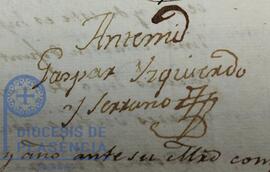 Antemi
Gaspar Yzquierdo
y Serrano
DIOCESIS DE
PLASENCIA
y año ante su Mrd con